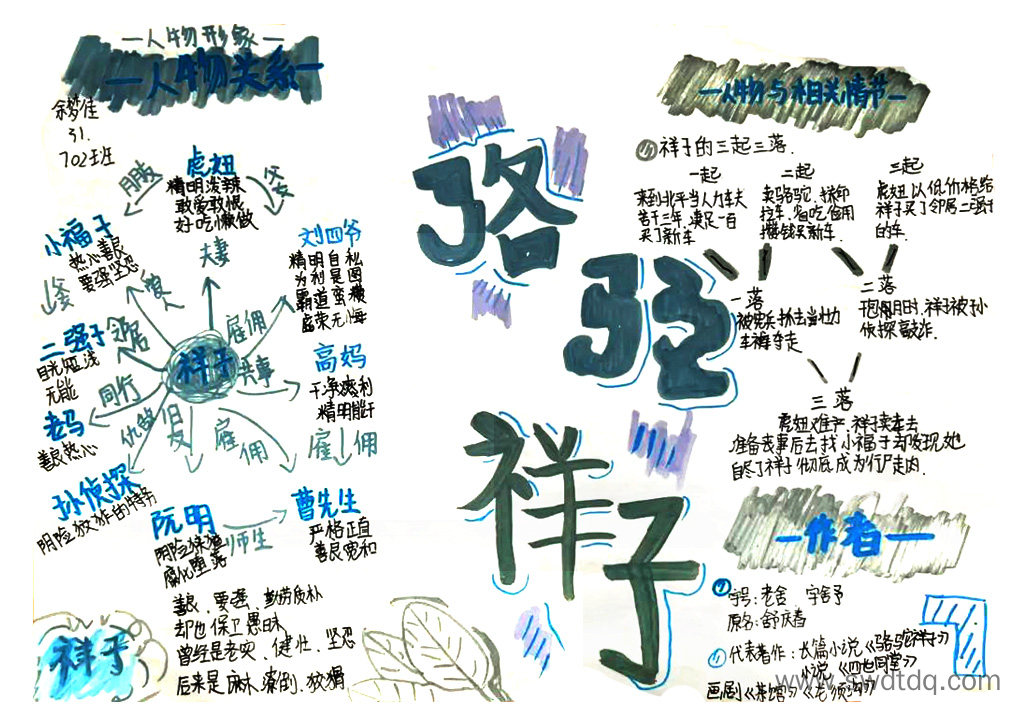 人物形象
人物关系
余梦佳
31.
702班
朋友
虎妞
精明泼辣
敢爱敢恨
好吃懒做
父女
小福子
热心善良
要强坚忍
父女
夫妻
刘四爷
精明自私
为利是图
霸道蛮横
虚荣无悔
二强子
目光短浅
无能
邻居
雇佣
祥子
共事
高妈
干净爽利
精明能干
老马
善良热心
同行
仇敌
旧友
雇佣
雇佣
孙侦探
阴险放诈的特务
阮明
阴险
腐化堕落
师生
曹先生
严格正直
善良宽和
祥子
善良、要强、勤劳质朴
却也保卫愚昧
曾经是老实、健壮、坚忍
后来是麻木、潦倒、狡猾
骆驼
祥子
人物与相关情节
(1)祥子的三起三落.
一起
来到北平当人力车夫
苦干三年,凑足一百
买了新车
二起
卖骆驼、拼命
拉车,省吃俭用
攒钱买新车.
三起
虎妞以低价格给
祥子买了邻居二强子
的车.
一落
被宪抓去当壮力
车被夺走
二落
祥子被孙
侦探敲诈.
三落
虎妞难产,祥子卖车去
准备丧事后去找小福子却发现她
自尽了祥子彻底成为行尸走肉.
作者
字号:老舍 字舍予
原名:舒庆春
(1)代表著作:长篇小说《骆驼祥子》
小说《四世同堂》
画剧《茶馆》《龙须沟》
www.swdtdq.com